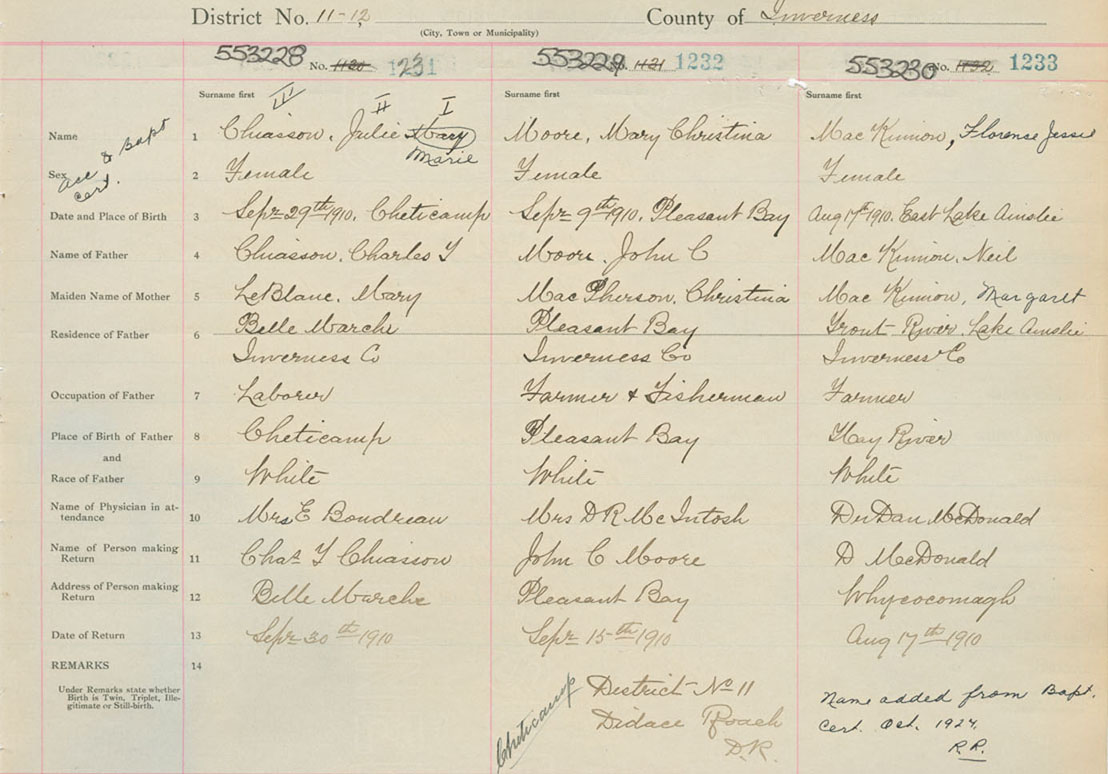 District No. 11-12 County of Inverness
(City, Town or Municipality)
553228 No. 1120 1231 553229 No. 1121 1232 553230 No. 1132 1233
Surname first III II I Surname first Surname first
Name 1 Chiasson, Julie Mary Moore, Mary Christina Mac Kinnon, Florence Jessie
Marie
acc & Bapt
cert.
Sex 2 Female Female Female
Date and Place of Birth 3 Sept 29th 1910. Cheticamp Sept 9th 1910. Pleasant Bay Aug 17th 1910. East Lake Ainslie
Name of Father 4 Chiasson. Charles T Moore. John C Mac Kinnon. Neil
Maiden Name of Mother 5 LeBlanc. Mary Mac Pherson. Christina Mac Kinnon, Margaret
Residence of Father 6 Belle Marche Pleasant Bay Trout River. Lake Ainslie
Inverness Co Inverness Co Inverness Co
Occupation of Father 7 Laborer Farmer & Fisherman Farmer
Place of Birth of Father 8 Cheticamp Pleasant Bay Hay River
and
Race of Father 9 White White White
Name of Physician in at-
tendance 10 Mrs E Boudreau Mrs D R McIntosh Dr Dan McDonald
Name of Person making
Return 11 Chas T Chiasson John C Moore D McDonald
Address of Person making
Return 12 Belle Marche Pleasant Bay Whycocomagh
Date of Return 13 Sept 30th 1910 Sept 15th 1910 Aug 17th 1910
REMARKS 14
Under Remarks state whether
Birth is Twin, Triplet, Ille-
gitimate or Still-birth.
Cheticamp District No 11
Didace Roach
D.R.
Name added from Bapt.
Cert. Oct. 1924
R.R.